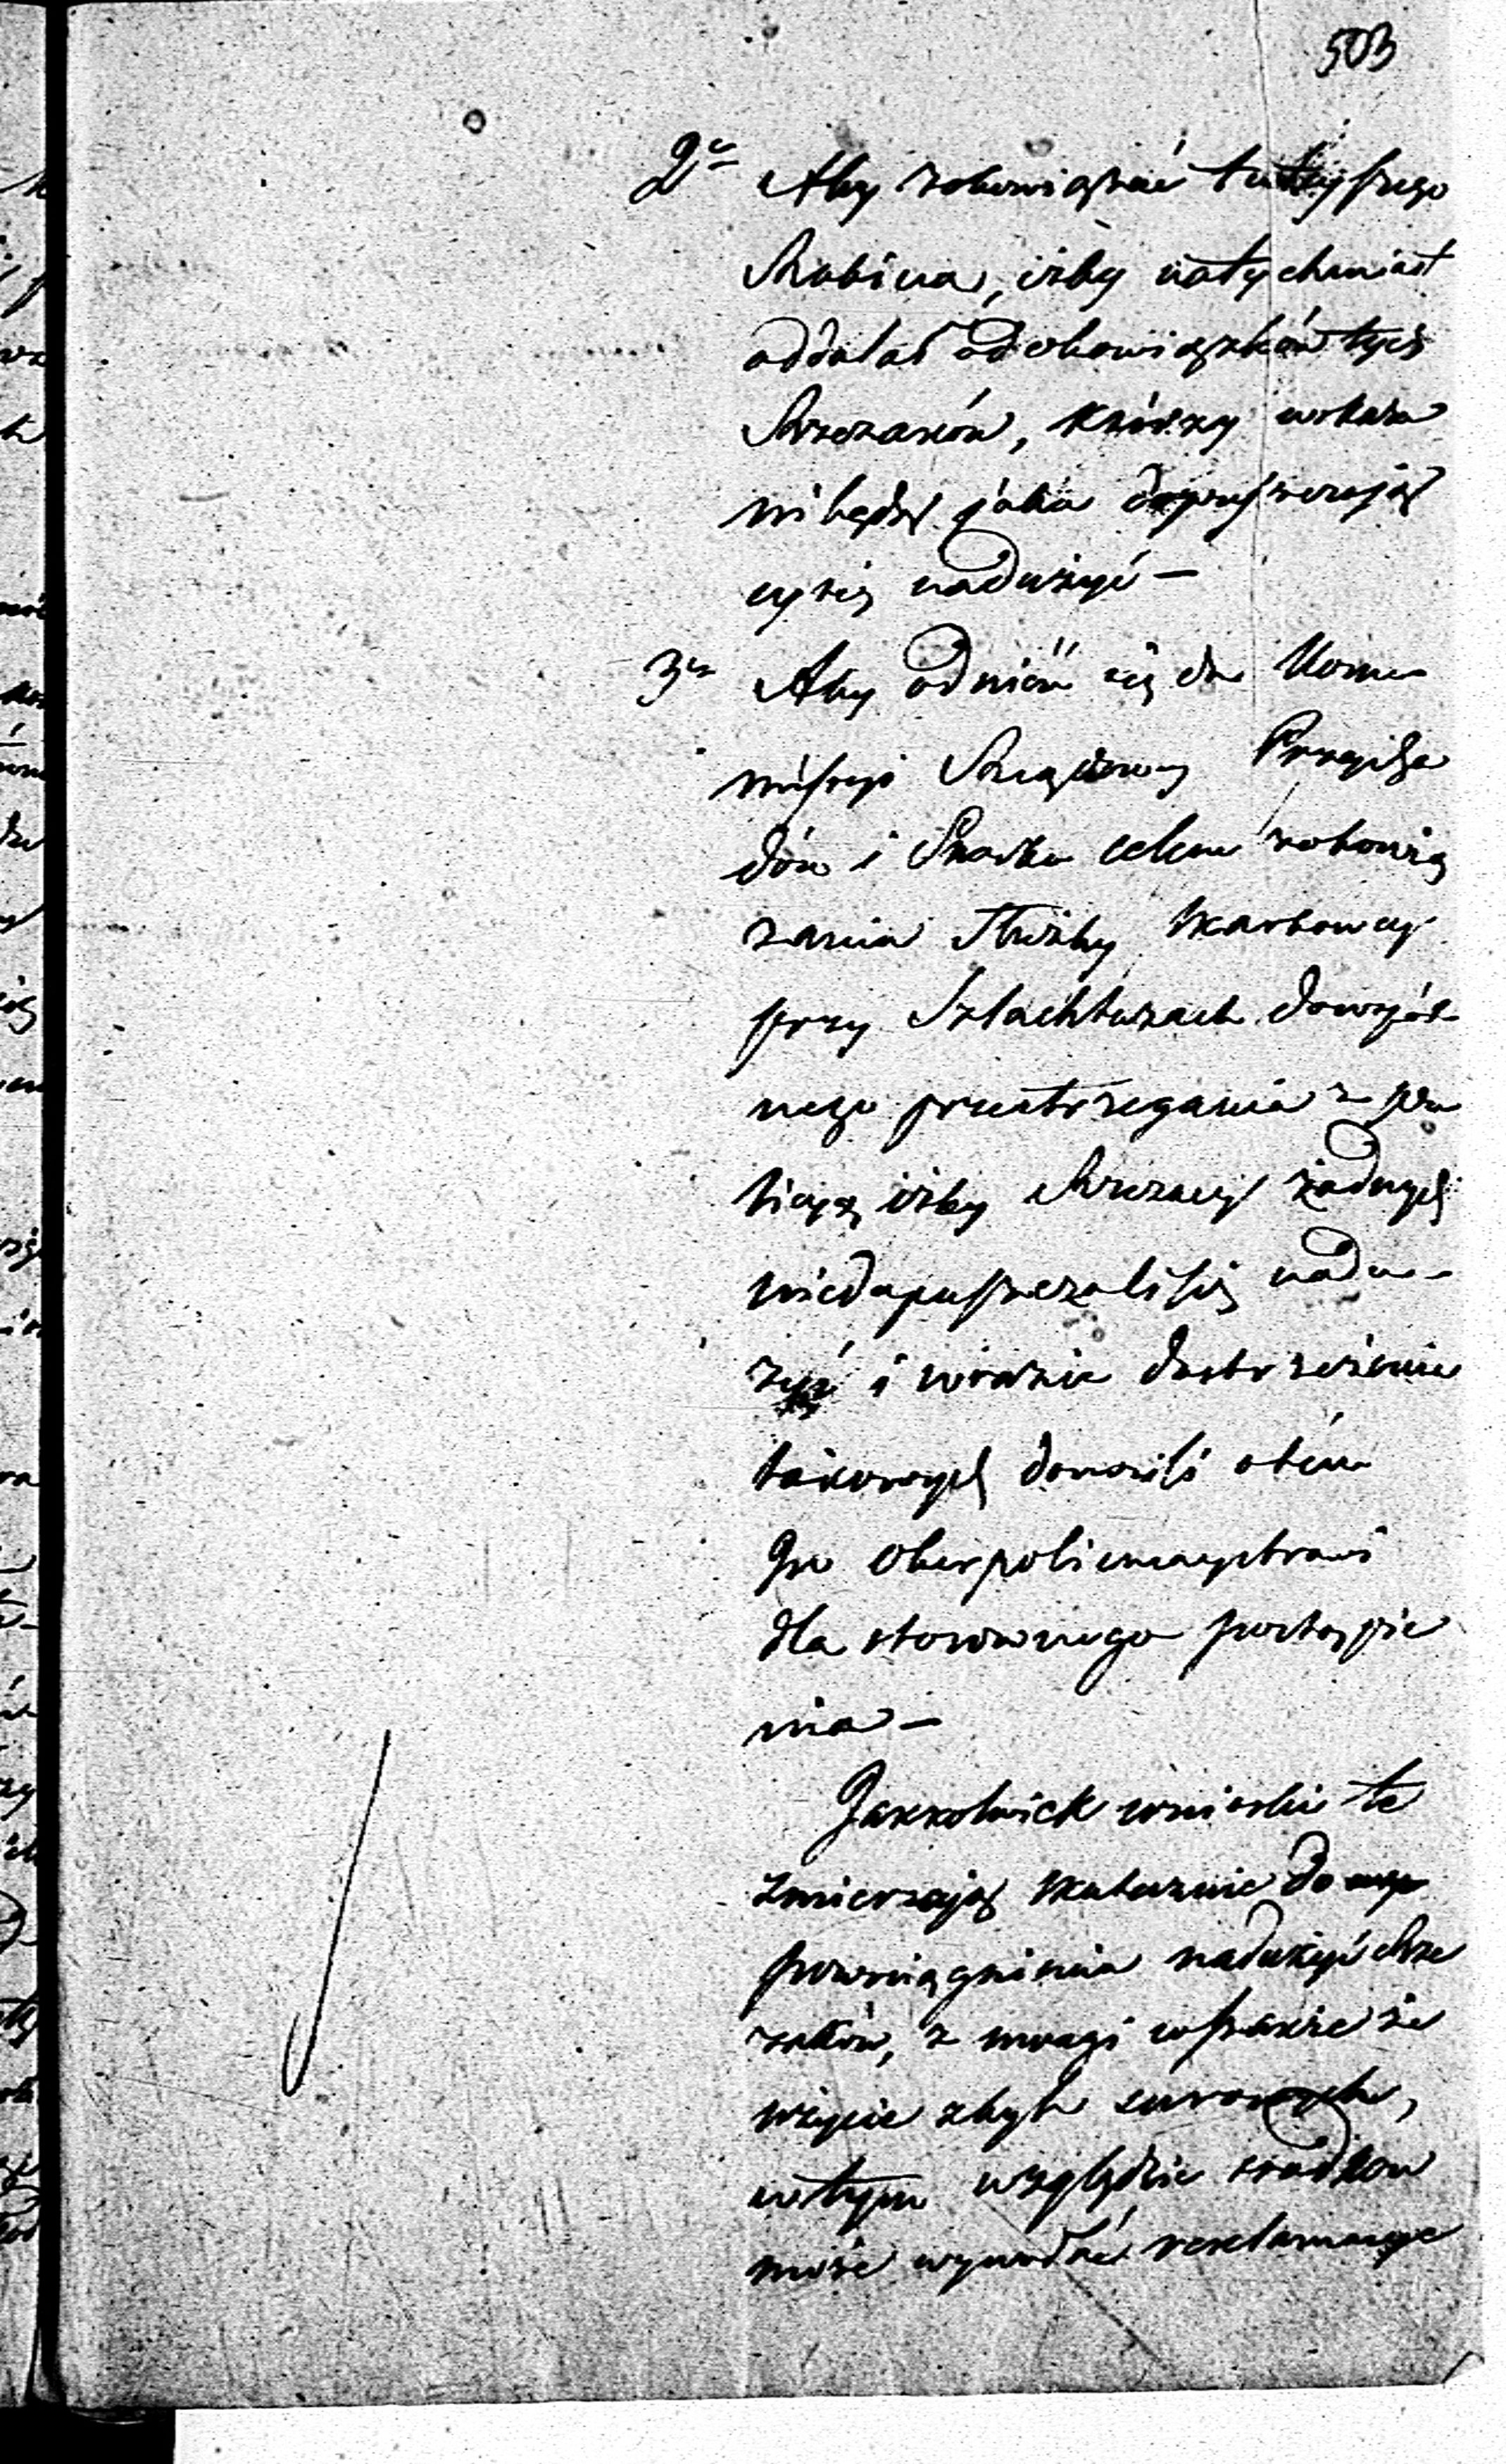 503
2e Aby zobowiązać tutejszego
Rabina, iżby natychmiast
oddalał od obowiązków tych
Rzezaków, którzy
dopuszczają
cych nadużyć —
3e Aby odnieść się do Kom-
missyi Rządowey Przycho
dów i Skarbu celem zobowią
zania Służby Skarbowey
przy Szlachtuzach do
nego przestrzegania z po
licyą iżby Rzezacy żadnych
niedopuszczali się nadu-
żyć i w razie dostrzeżenia
takowych donosili o tem
Jw Oberpolicmaystrowi
dla stosownego postąpie
nia —
Jakkolwiek wnioski te
zmierzają skutecznie do
powściągnienia nadużyć Rze
zaków, z uwagi wszakże że
użycie zbyt surowych,
w tym względzie środków
może wywołać reklamacye